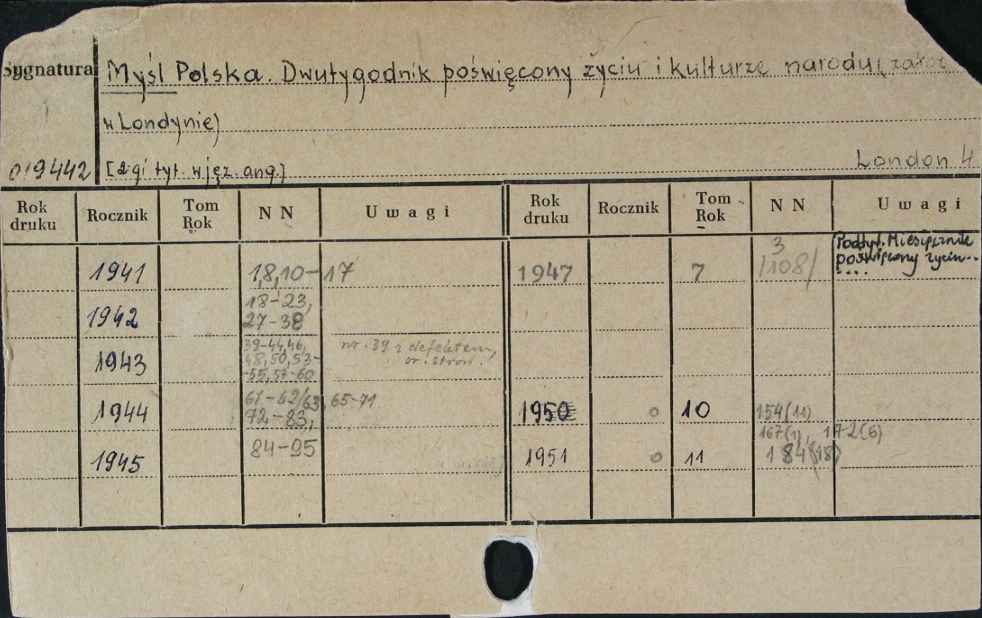 Sygnatura Myśl Polska. Dwutygodnik poświęcony życiu i kulturze narodu,
w Londynie)
019442 [2gi tyt. w jęz. ang.] London 4
Rok druku Rocznik Tom Rok N N Uwagi Rok druku Rocznik Tom Rok N N Uwagi
1941 1,8,10-17 1947 7 3 /108/ Podtyt. Miesięcznik poświęcony życiu.. ....
1942 18-23, 27-38
1943 39-44,46, 48,50,53- -55,57-60 nr. 39 z defektem,
1944 61-62/63, 65-71 72-83, 1950 o 10 154(11)
1945 84-95 1951 o 11 167(1), 172(6) 184(18)